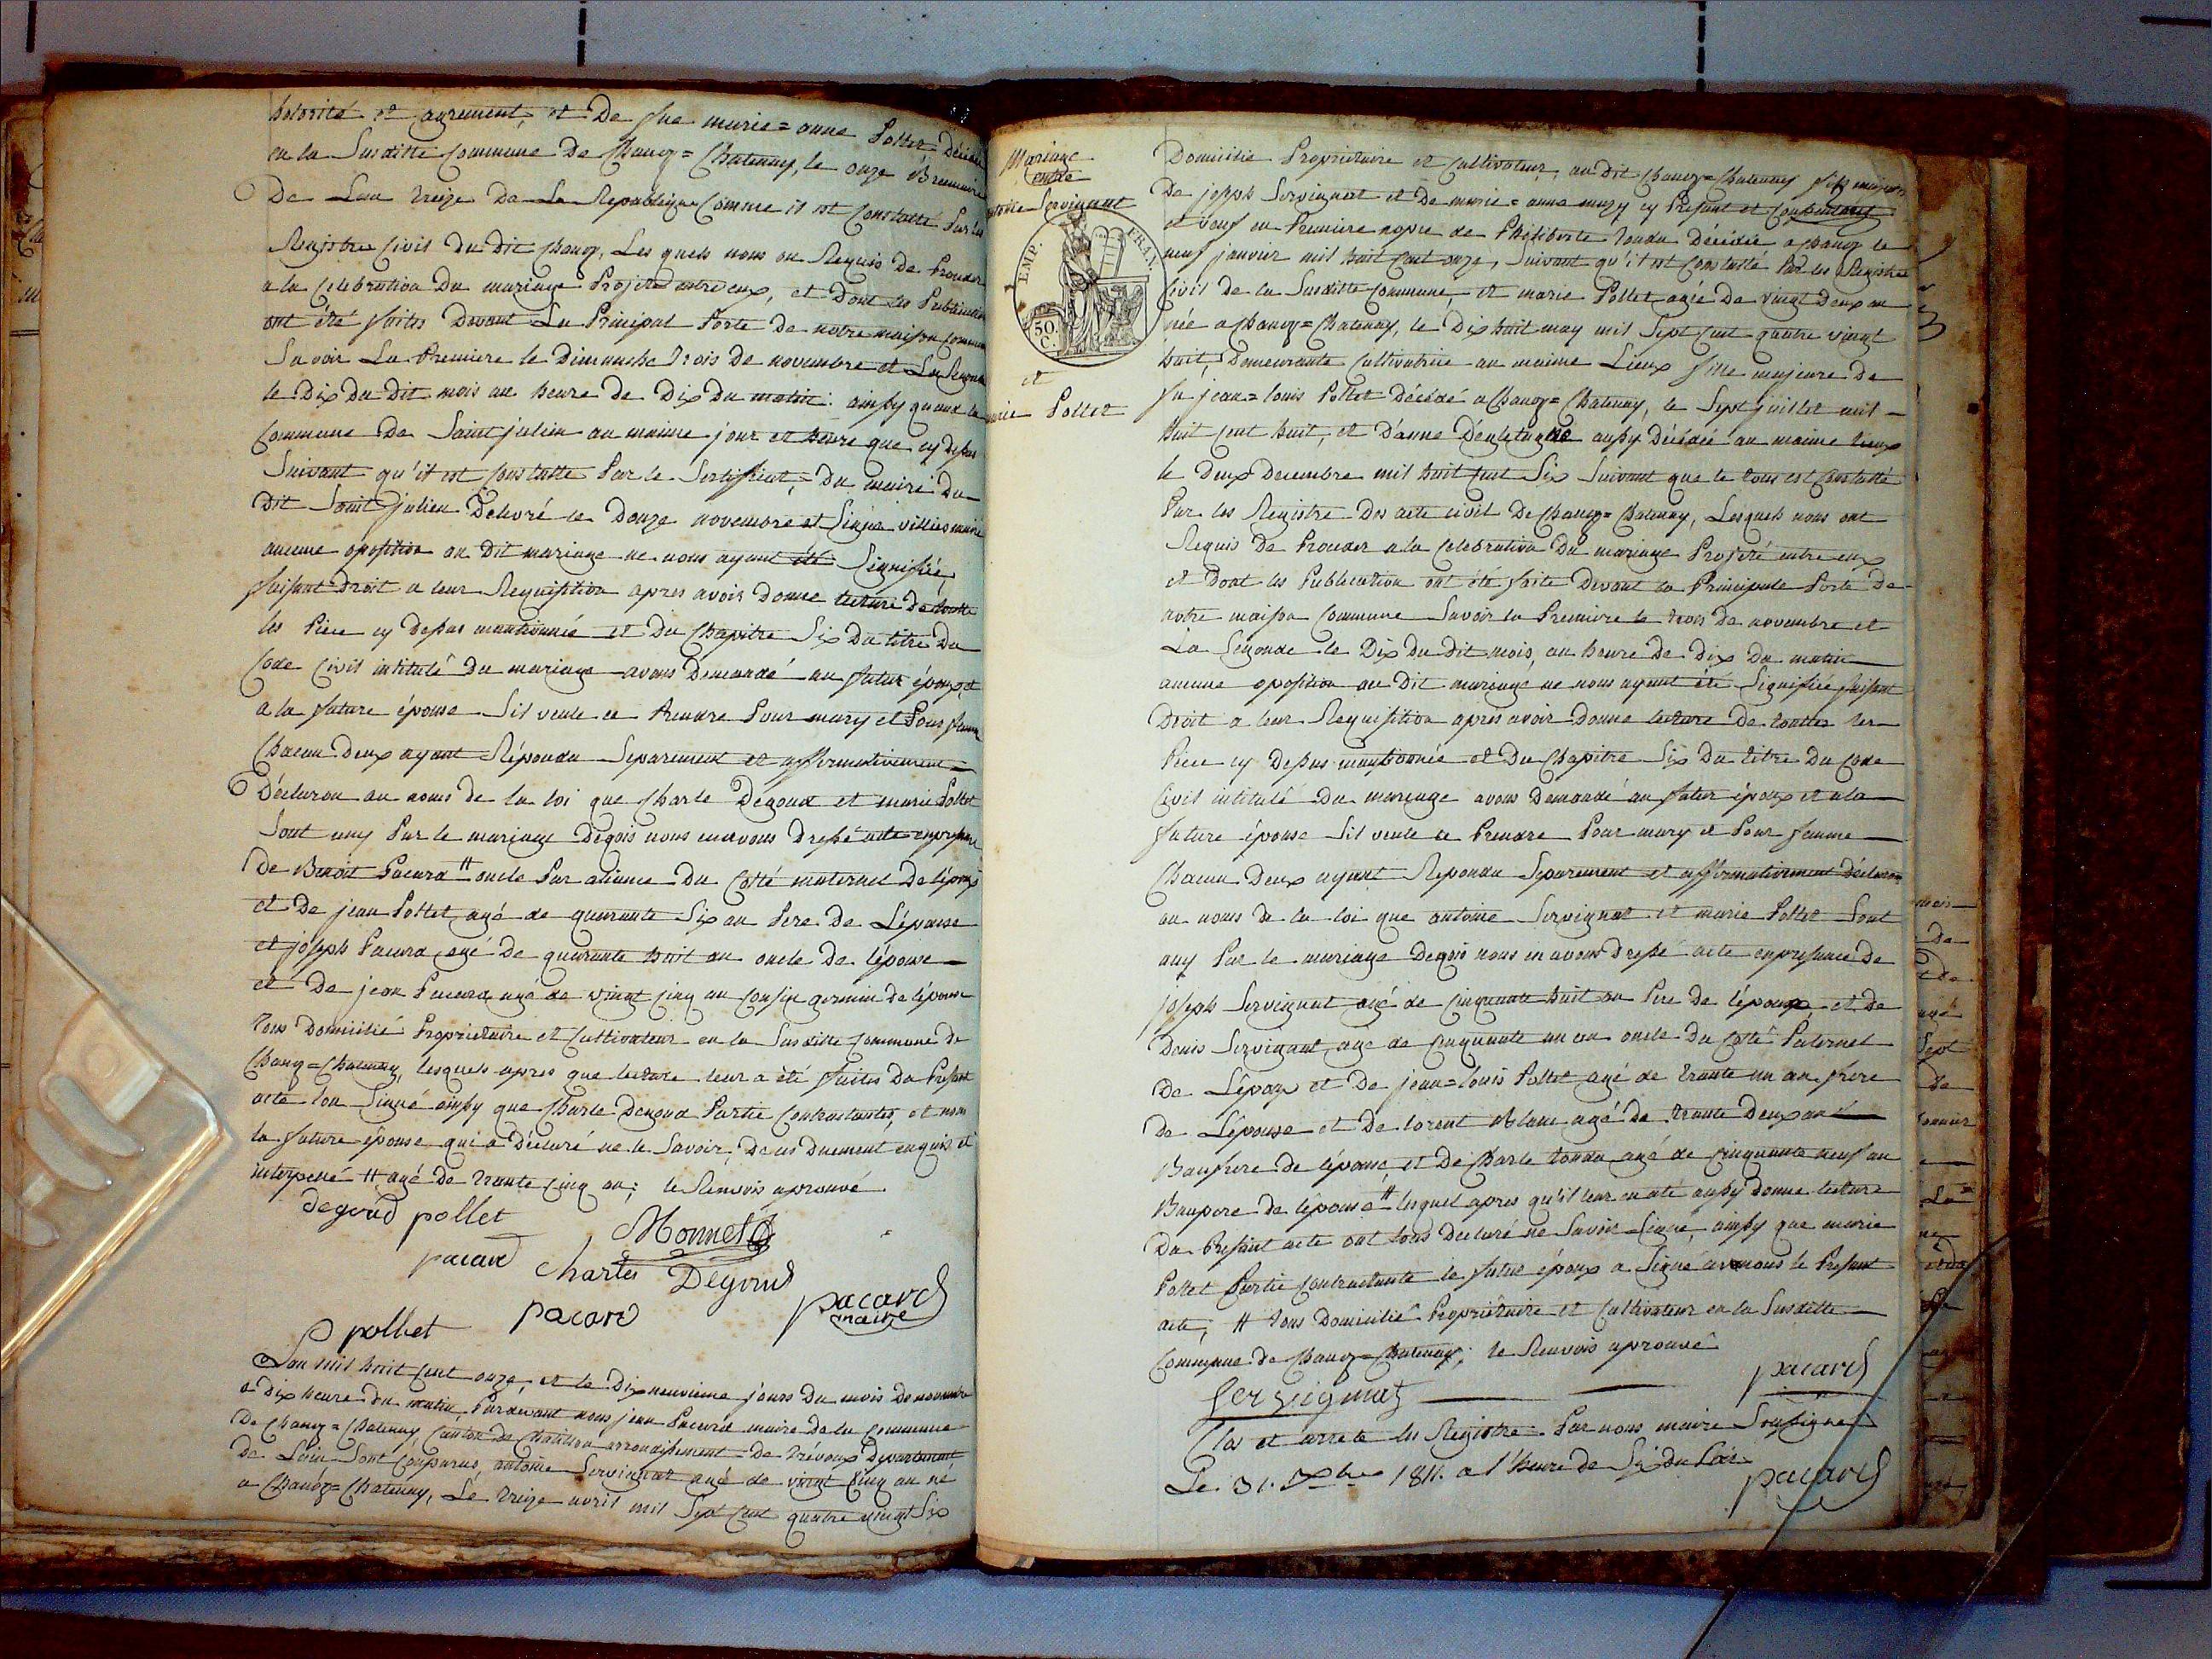 autorité et agrement, et De fue marie=anne Pollet Décédée
en la Susditte Commune De Chanoz=Chatenay, le onze Brumaire
De Lan treize De La Republique Comme il est Constatté Par les
Registre Civil Du Dit Chanoz, Les quels nous on Requis De Proceder
a la Celebration Du mariage Projeté entre eux, et Dont les Publication
ont été faites Devant La Principal Porte De notre maison Commune
Savoir La Premiere le Dimanche trois De novembre et La Seconde
le Dix Du Dit mois au heure de Dix Du matin. ainsy qu'aux la
Commune De Saint julien au maime jour et heure que cy dessus
Suivant qu'il est Constatté Par le Sertificat, Du maire Du
Dit Saint julien Delivré le Douze novembre et Signé maire
aucune oposition au Dit mariage ne nous ayant été Signifiée,
faisant Droit a leur Requisition apres avoir Donne lecture De toutte
les Piece cy Dessus mantionnée et Du Chapitre Six Du titre Du
Code Civil intitulé Du mariage avons Demandé au futur époux et
a la future épouse Sil veule ce Prendre Pour mary et Pour famme
Chacun Deux ayant Répondu Separement et affirmativement
Déclaron au noms de la loi que Charle Degoud et marie Pollet
Sont uny Par le mariage Dequois nous en avons Dressé acte en presence
De Benoit Pacard # oncle Par aliance Du Cotté maternel De lépoux
et De jean Pollet, agé de quarante Six an Pere De Lépouse
et joseph Pacard agé De quarante huit an oncle De lépouse
et De jean Pacard agé de vingt Cinq an Cousin germain de lépouse
tous Domicilié Proprietaire et Cultivateur en la Susditte Commune De
Chanoz=Chatenay, lesquels apres que lecture leur a été faites Du Present
acte l'on Signé ainsy que Charle Degoud Partie Contractantes, et non
la future épouse qui a Déclaré ne le Savoir, De ces Duement enquis et
interpellé # agé De trante Cinq an; le Renvois aprouvé
degoud pollet
Monnet
pacard Charles Degoud
pacard
maire
pacard
pollet
Lan mil huit Cent onze, et le Dixneuvieme jours Du mois De novembre
a Dix heure Du matin, Pardevant nous jean Pacard maire De la Commune
De Chanoz=Chatenay, Canton De Chatillon arrondissement De trévoux Departement
De Lain Sont Comparus, antoine Servignat agé de vingt Cinq an né
a Chanoz=Chatenay, Le treize avril mil Sept Cent quatre vingt Six
Mariage
entre
antoine Servignat
EMP. FRAN.
50.
C.
et
marie Pollet
Domicilie Proprietaire et Cultivateur, au dit Chanoz=Chatenay fils majeur
De joseph Servignat et De marie=anne cy Present et Consentant
et veuf en Premiere nopse de Philiberte tondu Décédée a Chanoz le
neuf janvier mil huit Cent onze, Suivant qu'il est Constatté Par les Registre
Civil De la Susditte Commune, et marie Pollet agée De vingt Deux an
née a Chanoz=Chatenay, le Dix huit may mil Sept Cent quatre vingt
huit, Demeurante Cultivatrice au maime Lieux fille majeure De
fu jean=louis Pollet Décédé a Chanoz=Chatenay, le Sept juillet mil
huit Cent huit, et D'anne ausy Décédée au maime lieux
le Deux Decembre mil huit Cent Six Suivant que le tous est Constatté
Par les Registre Des acte civil De Chanoz=Chatenay, Lesquels nous ont
Requis De Proceder a la Celebration Du mariage Projeté entre eux
et Dont les Publication ont été faite Devant la Principale Porte De
notre maison Commune Savoir la Premiere le trois De novembre et
La Segonde le Dix Du Dit mois, au heure De Dix Du matin
aucune oposition au Dit mariage ne nous ayant été Signifiée faisant
Droit a leur Requisition apres avoir Donne lecture De touttes les
Piece cy Dessus mantionnée et Du Chapitre Six Du titre Du Code
Civil intitulé Du mariage avons Demandé au futur époux et a la
future épouse Sil veule ce Prendre Pour mary et Pour famme
Chacun Deux ayant Repondu Separement et affirmativement Déclaron
au noms De la loi que antoine Servignat et marie Pollet Sont
uny Par le mariage Dequois nous en avons Dressé acte en presence De
joseph Servignat agé de Cinquante huit an Pere De lépoux, et De
Denis Servignat, agé de Cinquante un an oncle Du Cotté Paternel
De Lépoux et De jean=louis Pollet agé de trante un an frere
De Lépouse et De lorent Blanc agé De trante Deux an
Baufrere De lépouse, et De Charle tondu agé de Cinquante neuf an
Baupere De lépouse # lesquel apres qu'il leur en até ausy Donne lecture
Du Present acte ont tous Declaré ne Savoir Signé, ainsy que marie
Pollet Partie Contractante le futur époux a Signé avec nous le Present
acte; # tous Domicilié Propriétaire et Cultivateur en la Susditte
Commune De Chanoz=Chatenay; le Renvois aprouvé
pacard
Servignat
Clos et arreté les Registre Par nous maire Soussigné
Le 31. Xbre 1811. a l'heure de Six du Soir
pacard